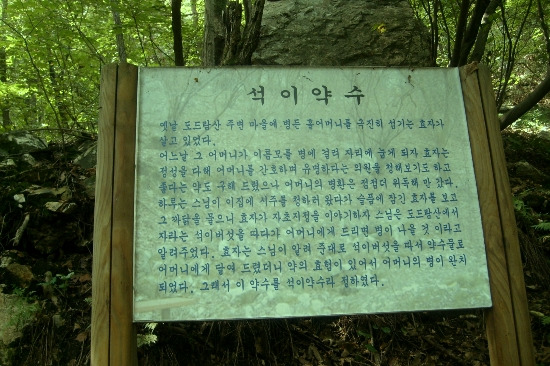 석이약수
옛날 도드람산 주변 마을에 병든 홀어머니를 극진히 섬기는 효자가
살고 있었다.
어느날 그 어머니가 이름모를 병에 걸려 자리에 눕게 되자 효자는
정성을 다해 어머니를 간호하며 유명하다는 의원을 청해보기도 하고
좋다는 약도 구해 드렸으나 어머니의 병환은 점점더 위독해 만 갔다.
하루는 스님이 이집에 시주를 청하러 왔다가 슬픔에 잠긴 효자를 보고
그 까닭을 물으니 효자가 자초지정을 이야기하자 스님은 도드람산에서
자라는 석이버섯을 따다가 어머니에게 드리면 병이 나을 것 이라고
알려주었다. 효자는 스님이 알려 준대로 석이버섯을 따서 약수물로
어머니에게 달여 드렸더니 약의 효험이 있어서 어머니의 병이 완치
되었다. 그래서 이 약수를 석이약수라 정하였다.